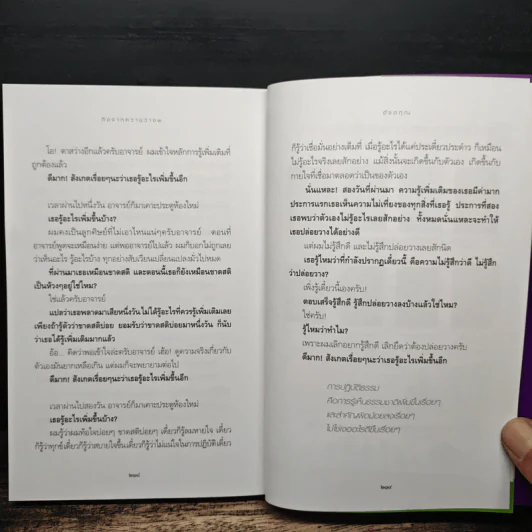 โอ! ตาสว่างอีกแล้วครับอาจารย์ ผมเข้าใจหลักการรู้เพิ่มเติมที่
ถูกต้องแล้ว
ดีมาก! สังเกตเรื่อยๆนะว่าเธอรู้อะไรเพิ่มขึ้นอีก
เวลาผ่านไปหนึ่งวัน อาจารย์ก็มาเคาะประตูห้องใหม่
เธอรู้อะไรเพิ่มขึ้นบ้าง?
ผมคงเป็นลูกศิษย์ที่ไม่เอาไหนแน่ๆครับอาจารย์ ตอนที่
อาจารย์พูดจะเหมือนง่าย แต่พออาจารย์ไปแล้ว ผมก็บอกไม่ถูกเลย
ว่าเห็นอะไร รู้อะไรบ้าง ทุกอย่างสับเปลี่ยนแปลงมั่วไปหมด
ที่ผ่านมาเธอเหมือนขาดสติ และตอนนี้เธอก็ยังเหมือนขาดสติ
เป็นห้วงๆอยู่ใช่ไหม?
ใช่แล้วครับอาจารย์
แปลว่าเธอพลาดมาเสียหนึ่งวัน ไม่ได้รู้อะไรที่ควรรู้เพิ่มเติมเลย
เพียงถ้ารู้ตัวว่าขาดสติบ่อย ยอมรับว่าขาดสติบ่อยมาหนึ่งวัน ก็นับ
ว่าเธอได้รู้เพิ่มเติมมากแล้ว
อือ... คิดว่าพอเข้าใจล่ะครับอาจารย์ เฮ้อ! ดูความจริงเกี่ยวกับ
ตัวเองมันยากเหลือเกิน แต่ผมก็จะพยายามต่อไป
ดีมาก! สังเกตเรื่อยๆนะว่าเธอรู้อะไรเพิ่มขึ้นอีก
เวลาผ่านไปสองวัน อาจารย์ก็มาเคาะประตูห้องใหม่
เธอรู้อะไรเพิ่มขึ้นบ้าง?
ผมรู้ว่าผมท้อใจบ่อยๆ ขาดสติบ่อยๆ เดี๋ยวก็รู้ลมหายใจ เดี๋ยว
ก็รู้ว่าทุกข์ เดี๋ยวก็รู้ว่าสบายใจขึ้น เดี๋ยวก็รู้ว่าไม่แน่ใจในการปฏิบัติ เดี๋ยว
ดังตฤณ
ก็รู้ว่าเชื่อมั่นอย่างเต็มที่ เมื่อรู้อะไรได้แค่ประเดี๋ยวประด๋าว ก็เหมือน
ไม่รู้อะไรจริงเลยสักอย่าง แม้สิ่งนั้นจะเกิดขึ้นกับตัวเอง เกิดขึ้นกับ
กายใจที่เชื่อมาตลอดว่าเป็นของตัวเอง
นั่นแหละ! สองวันที่ผ่านมา ความรู้เพิ่มเติมของเธอมีค่ามาก
ประการแรกเธอเห็นความไม่เที่ยงของทุกสิ่งที่เธอรู้ ประการที่สอง
เธอพบว่าตัวเองไม่รู้อะไรเลยสักอย่าง ทั้งหมดนั่นแหละจะทำให้
เธอปล่อยวางได้อย่างดี
แต่ผมไม่รู้สึกดี และไม่รู้สึกปล่อยวางเลยสักนิด
เธอรู้ไหมว่าที่กำลังปรากฏเดี๋ยวนี้ คือความไม่รู้สึกว่าดี ไม่รู้สึก
ว่าปล่อยวาง?
เพิ่งรู้เดี๋ยวนี้เองครับ!
ตอบเสร็จรู้สึกดี รู้สึกปล่อยวางลงบ้างแล้วใช่ไหม?
ใช่ครับ!
รู้ไหมว่าทำไม?
เพราะผมเลิกอยากรู้สึกดี เลิกยึดว่าต้องปล่อยวางครับ
ดีมาก! สังเกตเรื่อยๆนะว่าเธอรู้อะไรเพิ่มขึ้นอีก
การปฏิบัติธรรม
คือการรู้เห็นธรรมชาติเพิ่มขึ้นเรื่อยๆ
และสำคัญผิดน้อยลงเรื่อยๆ
ไม่ใช่เจออะไรดีขึ้นเรื่อยๆ